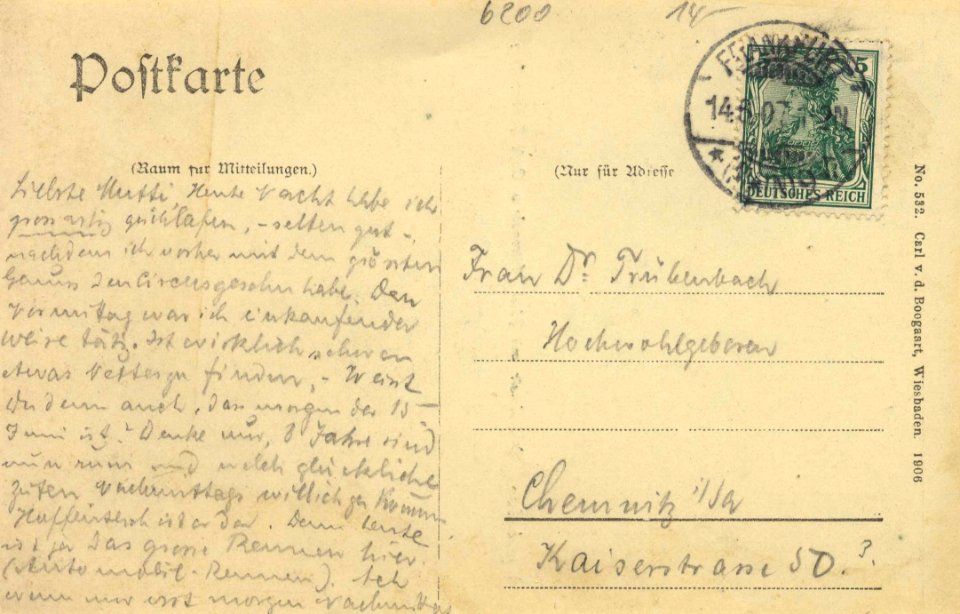 6200 14-
Postkarte
14.6.07
DEUTSCHES REICH
(Raum für Mitteilungen.)
(Nur für Adresse
Liebste Mutti, Heute Nacht habe ich
grossartig geschlafen, - selten gut -,
nachdem ich vorher mit dem grössten
Genuss den Circus gesehn habe. Den
Vormittag war ich einkaufender
Weise tätig. Ist wirklich schwer
etwas Nettes zu finden, - Weist
Du denn auch, das morgen der 15
Juni ist? Denke nur, 8 Jahre sind
nun rum und welch glückliche
Zeiten Nachmittags will ich zu
Hoffentlich ist er da. Denn heute
ist ja das grosse Rennen hier
(Automobil-Rennen). Ach
wenn nur erst morgen Nachmittag
Frau Dr. Trübenbach
Hochwohlgeboren
Chemnitz i/Sa
Kaiserstrasse 50.?
No. 532. Carl v. d. Boogaart, Wiesbaden. 1906